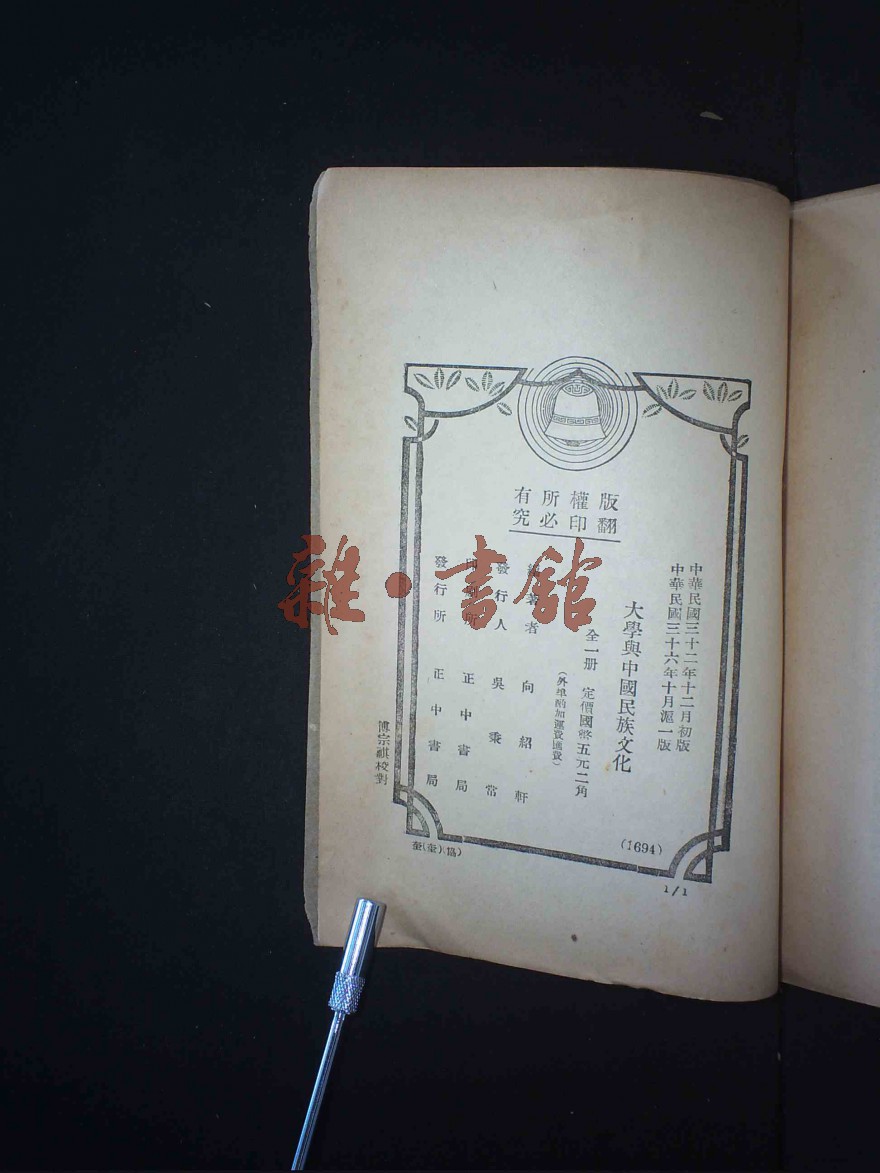 版權所有
翻印必究
中華民國三十二年十二月初版
中華民國三十六年十月滬一版
大學與中國民族文化
全一册 定價國幣五元二角
(外埠酌加運費匯費)
編著者 向紹軒
發行人 吳秉常
印刷所 正中書局
發行所 正中書局
(1694)
校對
1/1
雜·書館